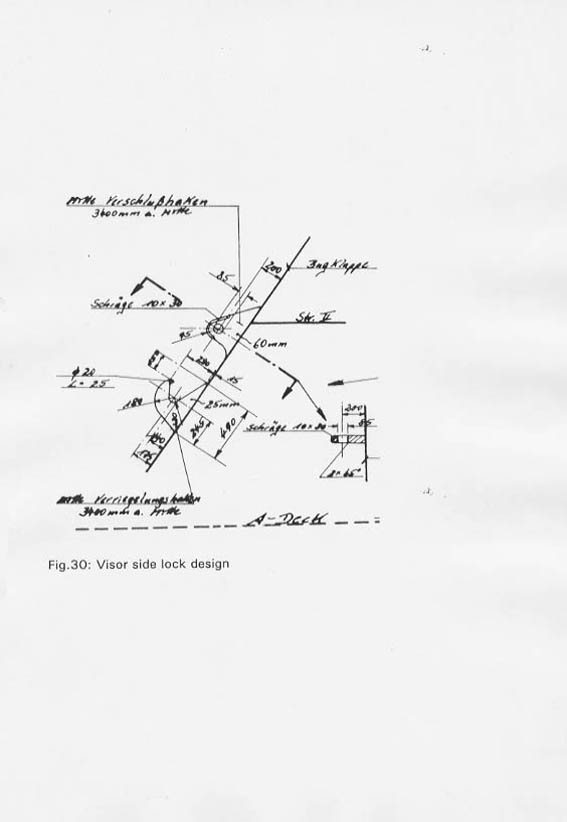 Mitte Verschlußhaken
3600mm a. Mitte
85
200
Bugklappe
Schräge 10×30
Str. V
60mm
230
15
φ 20
L = 25
180
25mm
245
490
380
85
Schräge 10×30
8×45°
175
Mitte Verriegelungshaken
a. Mitte
A-Deck
Fig.30: Visor side lock design